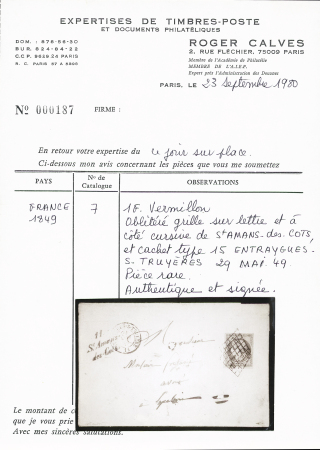 EXPERTISES DE TIMBRES-POSTE
ET DOCUMENTS PHILATÉLIQUES
DOM. : 876-56-30
BUR. 824-64-22
C.C.P. 8629 24 PARIS
R. C. PARIS 67 A 8895
ROGER CALVES
2, RUE FLÉCHIER, 75009 PARIS
Membre de l'Académie de Philatélie
MEMBRE DE L'A.I.E.P.
Expert près l'Administration des Douanes
PARIS, LE 23 Septembre 1980
No 000187 FIRME :
En retour votre expertise du ce jour sur place.
Ci-dessous mon avis concernant les pièces que vous me soumettez
PAYS No de Catalogue OBSERVATIONS
FRANCE 7 1F. Vermillon
1849 Oblitéré grille sur lettre et à
côté cursive de St AMANS-des-COTS
et cachet type 15 ENTRAYGUES-
S. TRUYÈRES 29 MAI 49.
Pièce rare.
Authentique et signée.
11
St Amans
des Cots
Monsieur
Le montant de c
que je vous prie
Avec mes sincères salutations.